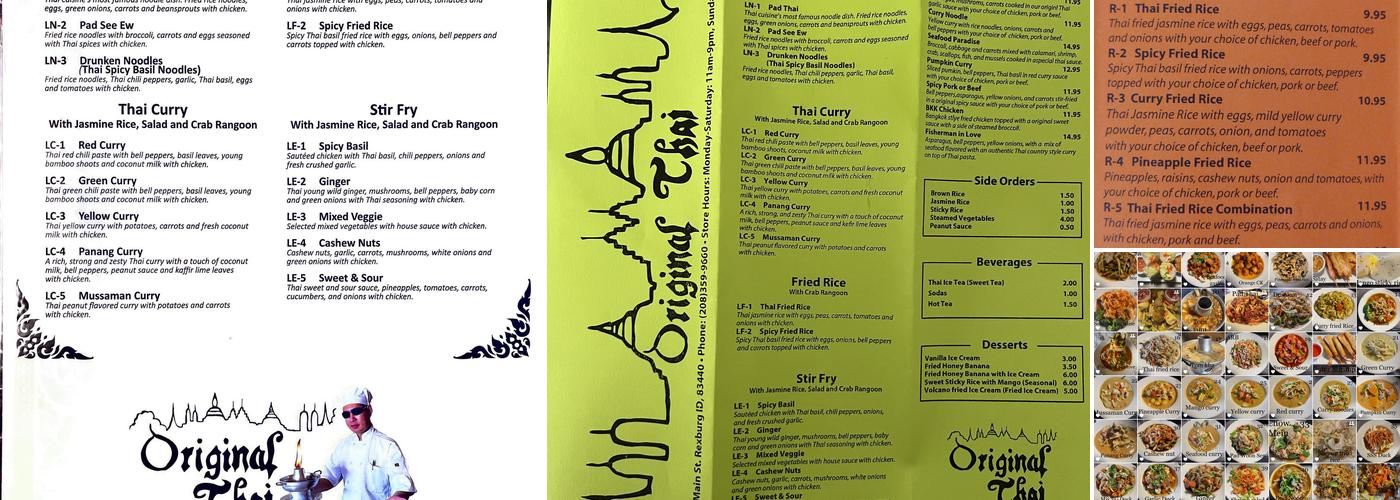 eggs, green onions, carrots and beansprouts with chicken.
LN-2 Pad See Ew
Fried rice noodles with broccoli, carrots and eggs seasoned
with Thai spices with chicken.
LN-3 Drunken Noodles
(Thai Spicy Basil Noodles)
Fried rice noodles, Thai chili peppers, garlic, Thai basil, eggs
and tomatoes with chicken.
Thai Curry
With Jasmine Rice, Salad and Crab Rangoon
LC-1 Red Curry
Thai red chili paste with bell peppers, basil leaves, young
bamboo shoots and coconut milk with chicken.
LC-2 Green Curry
Thai green chili paste with bell peppers, basil leaves, young
bamboo shoots and coconut milk with chicken.
LC-3 Yellow Curry
Thai yellow curry with potatoes, carrots and fresh coconut
milk with chicken.
LC-4 Panang Curry
A rich, strong and zesty Thai curry with a touch of coconut
milk, bell peppers, peanut sauce and kaffir lime leaves
with chicken.
LC-5 Mussaman Curry
Thai peanut flavored curry with potatoes and carrots
with chicken.
onions with chicken.
LF-2 Spicy Fried Rice
Spicy Thai basil fried rice with eggs, onions, bell peppers and
carrots topped with chicken.
Stir Fry
With Jasmine Rice, Salad and Crab Rangoon
LE-1 Spicy Basil
Sautéed chicken with Thai basil, chili peppers, onions and
fresh crushed garlic.
LE-2 Ginger
Thai young wild ginger, mushrooms, bell peppers, baby corn
and green onions with Thai seasoning with chicken.
LE-3 Mixed Veggie
Selected mixed vegetables with house sauce with chicken.
LE-4 Cashew Nuts
Cashew nuts, garlic, carrots, mushrooms, white onions and
green onions with chicken.
LE-5 Sweet & Sour
Thai sweet and sour sauce, pineapples, tomatoes, carrots,
cucumbers, and onions with chicken.
Original
Thai
Original Thai
Main St. Rexburg ID, 83440 • Phone: (208)359-9660 • Store Hours: Monday-Saturday: 11am-9pm, Sunda
LN-1 Pad Thai
Thai cuisine's most famous noodle dish. Fried rice noodles,
eggs, green onions, carrots and beansprouts with chicken.
LN-2 Pad See Ew
Fried rice noodles with broccoli, carrots and eggs seasoned
with Thai spices with chicken.
LN-3 Drunken Noodles
(Thai Spicy Basil Noodles)
Fried rice noodles, Thai chili peppers, garlic, Thai basil,
eggs and tomatoes with chicken.
Thai Curry
With Jasmine Rice, Salad and Crab Rangoon
LC-1 Red Curry
Thai red chili paste with bell peppers, basil leaves, young
bamboo shoots and coconut milk with chicken.
LC-2 Green Curry
Thai green chili paste with bell peppers, basil leaves, young
bamboo shoots and coconut milk with chicken.
LC-3 Yellow Curry
Thai yellow curry with potatoes, carrots and fresh coconut
milk with chicken.
LC-4 Panang Curry
A rich, strong, and zesty Thai curry with a touch of coconut
milk, bell peppers, peanut sauce and kafir lime leaves
with chicken.
LC-5 Mussaman Curry
Thai peanut flavored curry with potatoes and carrots
with chicken.
Fried Rice
With Crab Rangoon
LF-1 Thai Fried Rice
Thai jasmine rice with eggs, peas, carrots, tomatoes and
onions with chicken.
LF-2 Spicy Fried Rice
Spicy Thai basil fried rice with eggs, onions, bell peppers
and carrots topped with chicken.
Stir Fry
With Jasmine Rice, Salad and Crab Rangoon
LE-1 Spicy Basil
Sautéed chicken with Thai basil, chili peppers, onions,
and fresh crushed garlic.
LE-2 Ginger
Thai young wild ginger, mushrooms, bell peppers, baby
corn and green onions with Thai seasoning with chicken.
LE-3 Mixed Veggie
Selected mixed vegetables with house sauce with chicken.
LE-4 Cashew Nuts
Cashew nuts, garlic, carrots, mushrooms, white onions
and green onions with chicken.
LE-5 Sweet & Sour
Curry Noodle 11.95
Yellow curry with rice noodles, onions, carrots, and
bell peppers with your choice of chicken, pork or beef.
Seafood Paradise 14.95
Broccoli, cabbage and carrots mixed with calamari, shrimp,
crab, scallops, fish, and mussels cooked in aspecial thai sauce.
Pumpkin Curry 12.95
Sliced pumpkin, bell peppers, Thai basil in red curry sauce
with your choice of chicken, pork or beef.
Spicy Pork or Beef 11.95
Bell peppers,asparagus, yellow onions, and carrots stir-fried
in a original spicy sauce with your choice of pork or beef.
BKK Chicken 11.95
Bangkok stlye fried chicken topped with a original sweet
sauce with a side of steamed broccoli.
Fisherman in Love 14.95
Asparagus, bell peppers, yellow onions, with a mix of
seafood flavored with an authentic Thai country style curry
on top of Thai pasta.
Side Orders
Brown Rice 1.50
Jasmine Rice 1.00
Sticky Rice 1.50
Steamed Vegetables 4.00
Peanut Sauce 0.50
Beverages
Thai Ice Tea (Sweet Tea) 2.00
Sodas 1.00
Hot Tea 1.50
Desserts
Vanilla Ice Cream 3.00
Fried Honey Banana 3.50
Fried Honey Banana with Ice Cream 6.00
Sweet Sticky Rice with Mango (Seasonal) 6.00
Volcano fried Ice Cream (Fried Ice Cream) 5.00
Original
Thai
R-1 Thai Fried Rice 9.95
Thai fried jasmine rice with eggs, peas, carrots, tomatoes
and onions with your choice of chicken, beef or pork.
R-2 Spicy Fried Rice 9.95
Spicy Thai basil fried rice with onions, carrots, peppers
topped with your choice of chicken, pork or beef.
R-3 Curry Fried Rice 10.95
Thai Jasmine Rice with eggs, mild yellow curry
powder, peas, carrots, onion, and tomatoes
with your choice of chicken, pork or beef.
R-4 Pineapple Fried Rice 11.95
Pineapples, raisins, cashew nuts, onion and tomatoes, with
your choice of chicken, pork or beef.
R-5 Thai Fried Rice Combination 11.95
Thai fried jasmine rice with eggs, peas, carrots and onions,
with chicken, pork and beef.
Curry fried Rice
Thai fried rice
Sweet & Sour
Green Curry
Mussaman Curry
Pineapple Curry
Mango curry
Yellow curry
Red curry
Curry noodles
Pumpkin Curry
Panang Curry
Cashew nut
Seafood curry
Chow
Mein